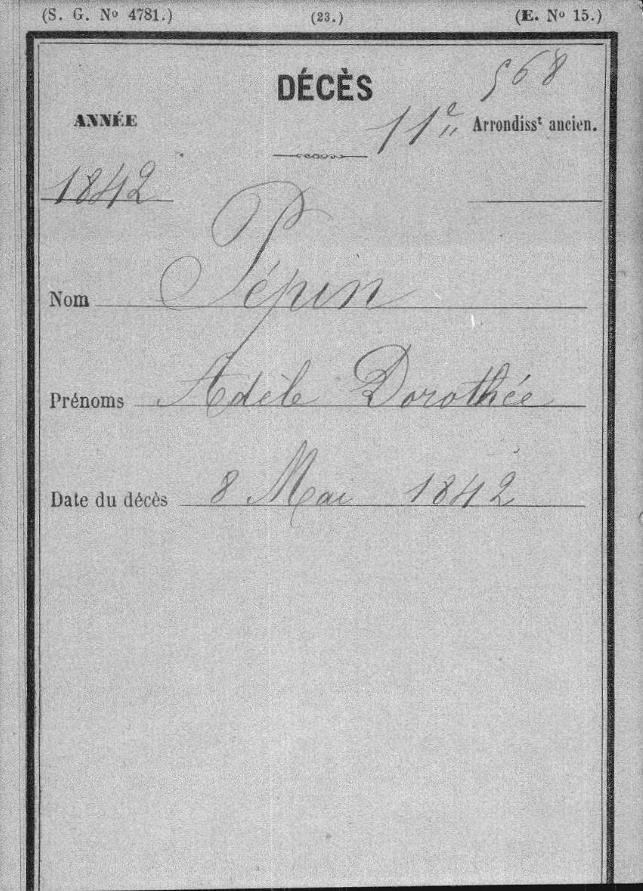 (S. G. Nº 4781.) (23.) (E. Nº 15.)
568
DÉCÈS
ANNÉE 11e Arrondisst ancien.
1842
Nom Pépin
Prénoms Adèle Dorothée
Date du décès 8 Mai 1842